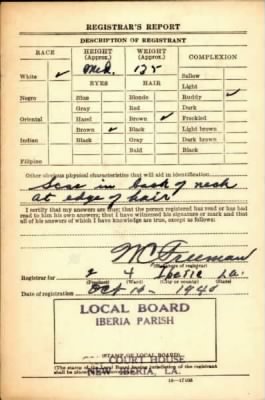 REGISTRAR'S REPORT
DESCRIPTION OF REGISTRANT
RACE HEIGHT (Approx.) WEIGHT (Approx.) COMPLEXION
White ✓ Med. Sallow
EYES HAIR Light
Negro Blue Blonde Ruddy ✓
Gray Red Dark
Oriental Hazel Brown ✓ Freckled
Brown ✓ Black Light brown
Indian Black Gray Dark brown
Bald Black
Filipino
Other obvious physical characteristics that will aid in identification
Scar in back of neck
at edge of hair
I certify that my answers are true; that the person registered has read or has had
read to him his own answers; that I have witnessed his signature or mark and that
all of his answers of which I have knowledge are true, except as follows:
Freeman
(Signature of registrar)
Registrar for 2 4 Iberia La.
(Precinct) (Ward) (State)
Date of registration Oct 1940
LOCAL BOARD
IBERIA PARISH
(STAMP OF LOCAL BOARD)
COURT HOUSE
NEW IBERIA, LA.